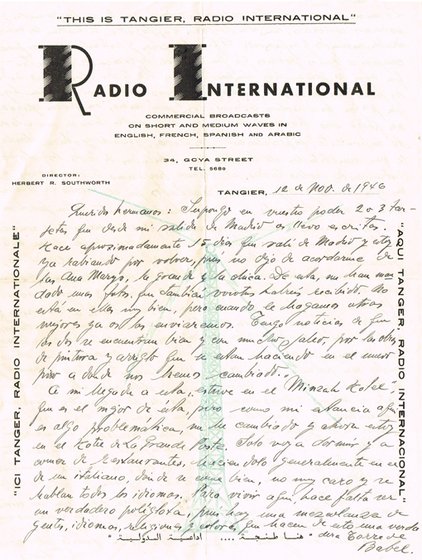 "THIS IS TANGIER, RADIO INTERNATIONAL"
RADIO INTERNATIONAL
COMMERCIAL BROADCASTS
ON SHORT AND MEDIUM WAVES IN
ENGLISH, FRENCH, SPANISH AND ARABIC
34, GOYA STREET
TEL. 5680
DIRECTOR:
HERBERT R. SOUTHWORTH
TANGIER, 12 de Nov. de 1946
"ICI TANGER, RADIO INTERNATIONALE"
"AQUI TANGER, RADIO INTERNACIONAL"
Querido hermanos: Supongo en vuestro poder 2 o 3 tar-
jetas que desde mi salida de Madrid os llevo escritas.
Hace aproximadamente 15 días que salí de Madrid y estoy
ya rabiando por volver, pues no dejo de acordarme de
las Ana Mergo, la grande y la chica. De esta, me han man-
dado unas fotos, que también vosotros habréis recibido. No
está en ellas muy bien, pero cuando le hagamos otras
mejores ya os las enviaremos. Tengo noticias de que
las dos se encuentran bien y en mucho jaleo, por las obras
de pintura y arreglo que se están haciendo en el nuevo
piso a donde nos hemos cambiado.
A mi llegada a esta, estuve en el Minzah Hotel,
que es el mejor de esta, pero como mi estancia aquí
es algo problemática, me he cambiado y ahora estoy
en el Hotel de La Grande Poste. Solo voy a dormir y a
comer de restaurantes, haciendolo generalmente en el
de un italiano, donde se come bien, no muy caro y se
hablan todos los idiomas. Para vivir aquí hace falta ser
un verdadero políglota, pues hay una mezcolanza de
gentes, idiomas, religiones y colores, que hacen de esto una verda-
dera Torre de
Babel.
"هنا طنجة .... اذاعية الدولية"